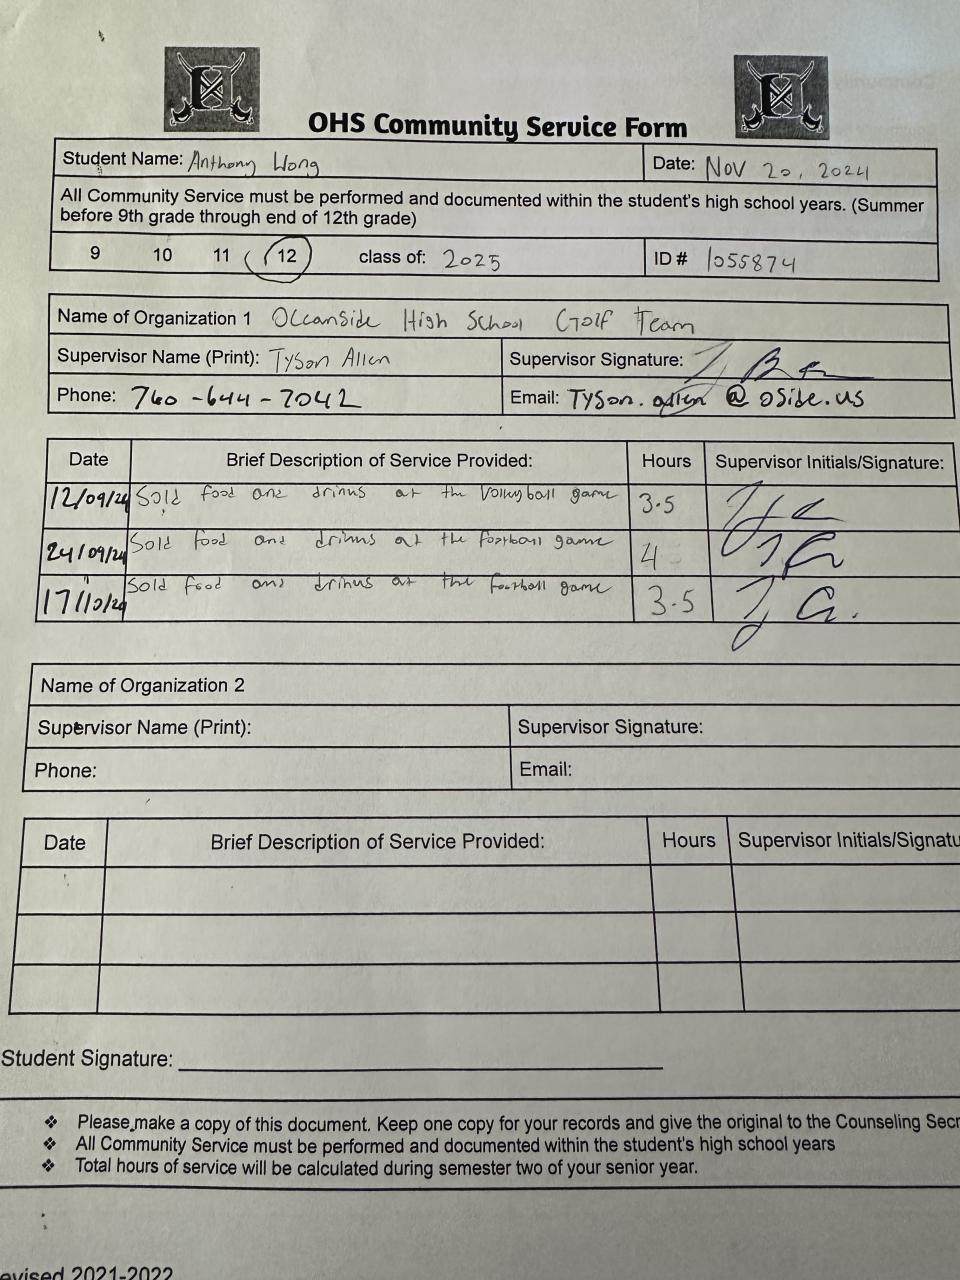 OHS Community Service Form
Student Name: Anthony Wong Date: Nov 20, 2024
All Community Service must be performed and documented within the student's high school years. (Summer
before 9th grade through end of 12th grade)
9 10 11 12 class of: 2025 ID # 1055874
Name of Organization 1 Oceanside High School Golf Team
Supervisor Name (Print): Tyson Allen Supervisor Signature:
Phone: 760-644-7042 Email: Tyson.allen@oside.us
Date Brief Description of Service Provided: Hours Supervisor Initials/Signature:
12/09/24 Sold food and drinks at the Volleyball game 3.5
24/09/24 Sold food and drinks at the football game 4
17/10/24 Sold food and drinks at the football game 3.5
Name of Organization 2
Supervisor Name (Print): Supervisor Signature:
Phone: Email:
Date Brief Description of Service Provided: Hours Supervisor Initials/Signatu
Student Signature:
❖ Please make a copy of this document. Keep one copy for your records and give the original to the Counseling Secr
❖ All Community Service must be performed and documented within the student's high school years
❖ Total hours of service will be calculated during semester two of your senior year.
evised 2021-2022